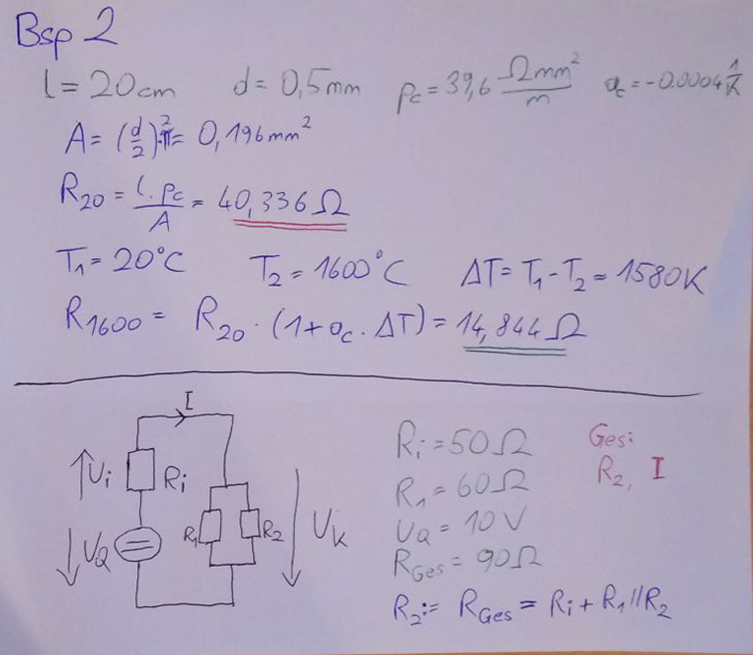 Bsp 2
l = 20cm d = 0,5mm ρc = 39,6 Ωmm²/m αc = -0.0004 1/K
A = (d/2)²·π = 0,196mm²
R20 = l·ρc/A = 40,336Ω
T1 = 20°C T2 = 1600°C ΔT = T1 - T2 = 1580K
R1600 = R20 · (1+αc · ΔT) = 14,844Ω
I
Ui Ri
UQ R1 R2 Uk
Ri = 50Ω Ges:
R1 = 60Ω R2, I
UQ = 10V
RGes = 90Ω
R2:= RGes = Ri + R1//R2